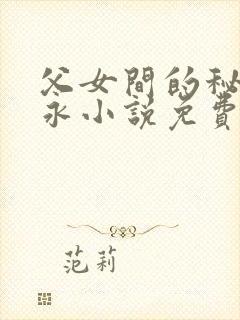 父女間的秘
永小說免費
范莉